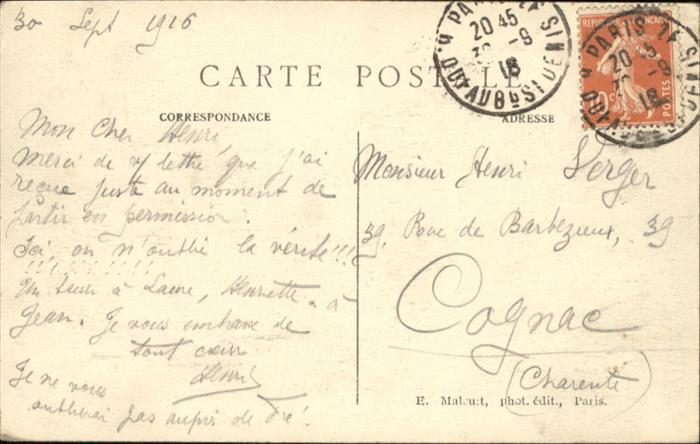 30 Sept 1916
CARTE POSTALE
CORRESPONDANCE
ADRESSE
Mon Cher Henri,
Merci de ta lettre que j'ai
reçue juste au moment de
partir en permission.
Ici, on n'oublie la vérité !!!
!!!!!!!!
Un baiser à Laure, Henriette à
Jean. Je vous embrasse de
tout cœur
Henri
Je ne vous
oublierai pas auprès de
Monsieur Henri Verger
39, Rue de Barbezieux, 39
Cognac
(Charente)
E. Malcuit, phot. édit., Paris.
REPUBLIQUE FRANÇAISE
10c
POSTES
PARIS
20 45